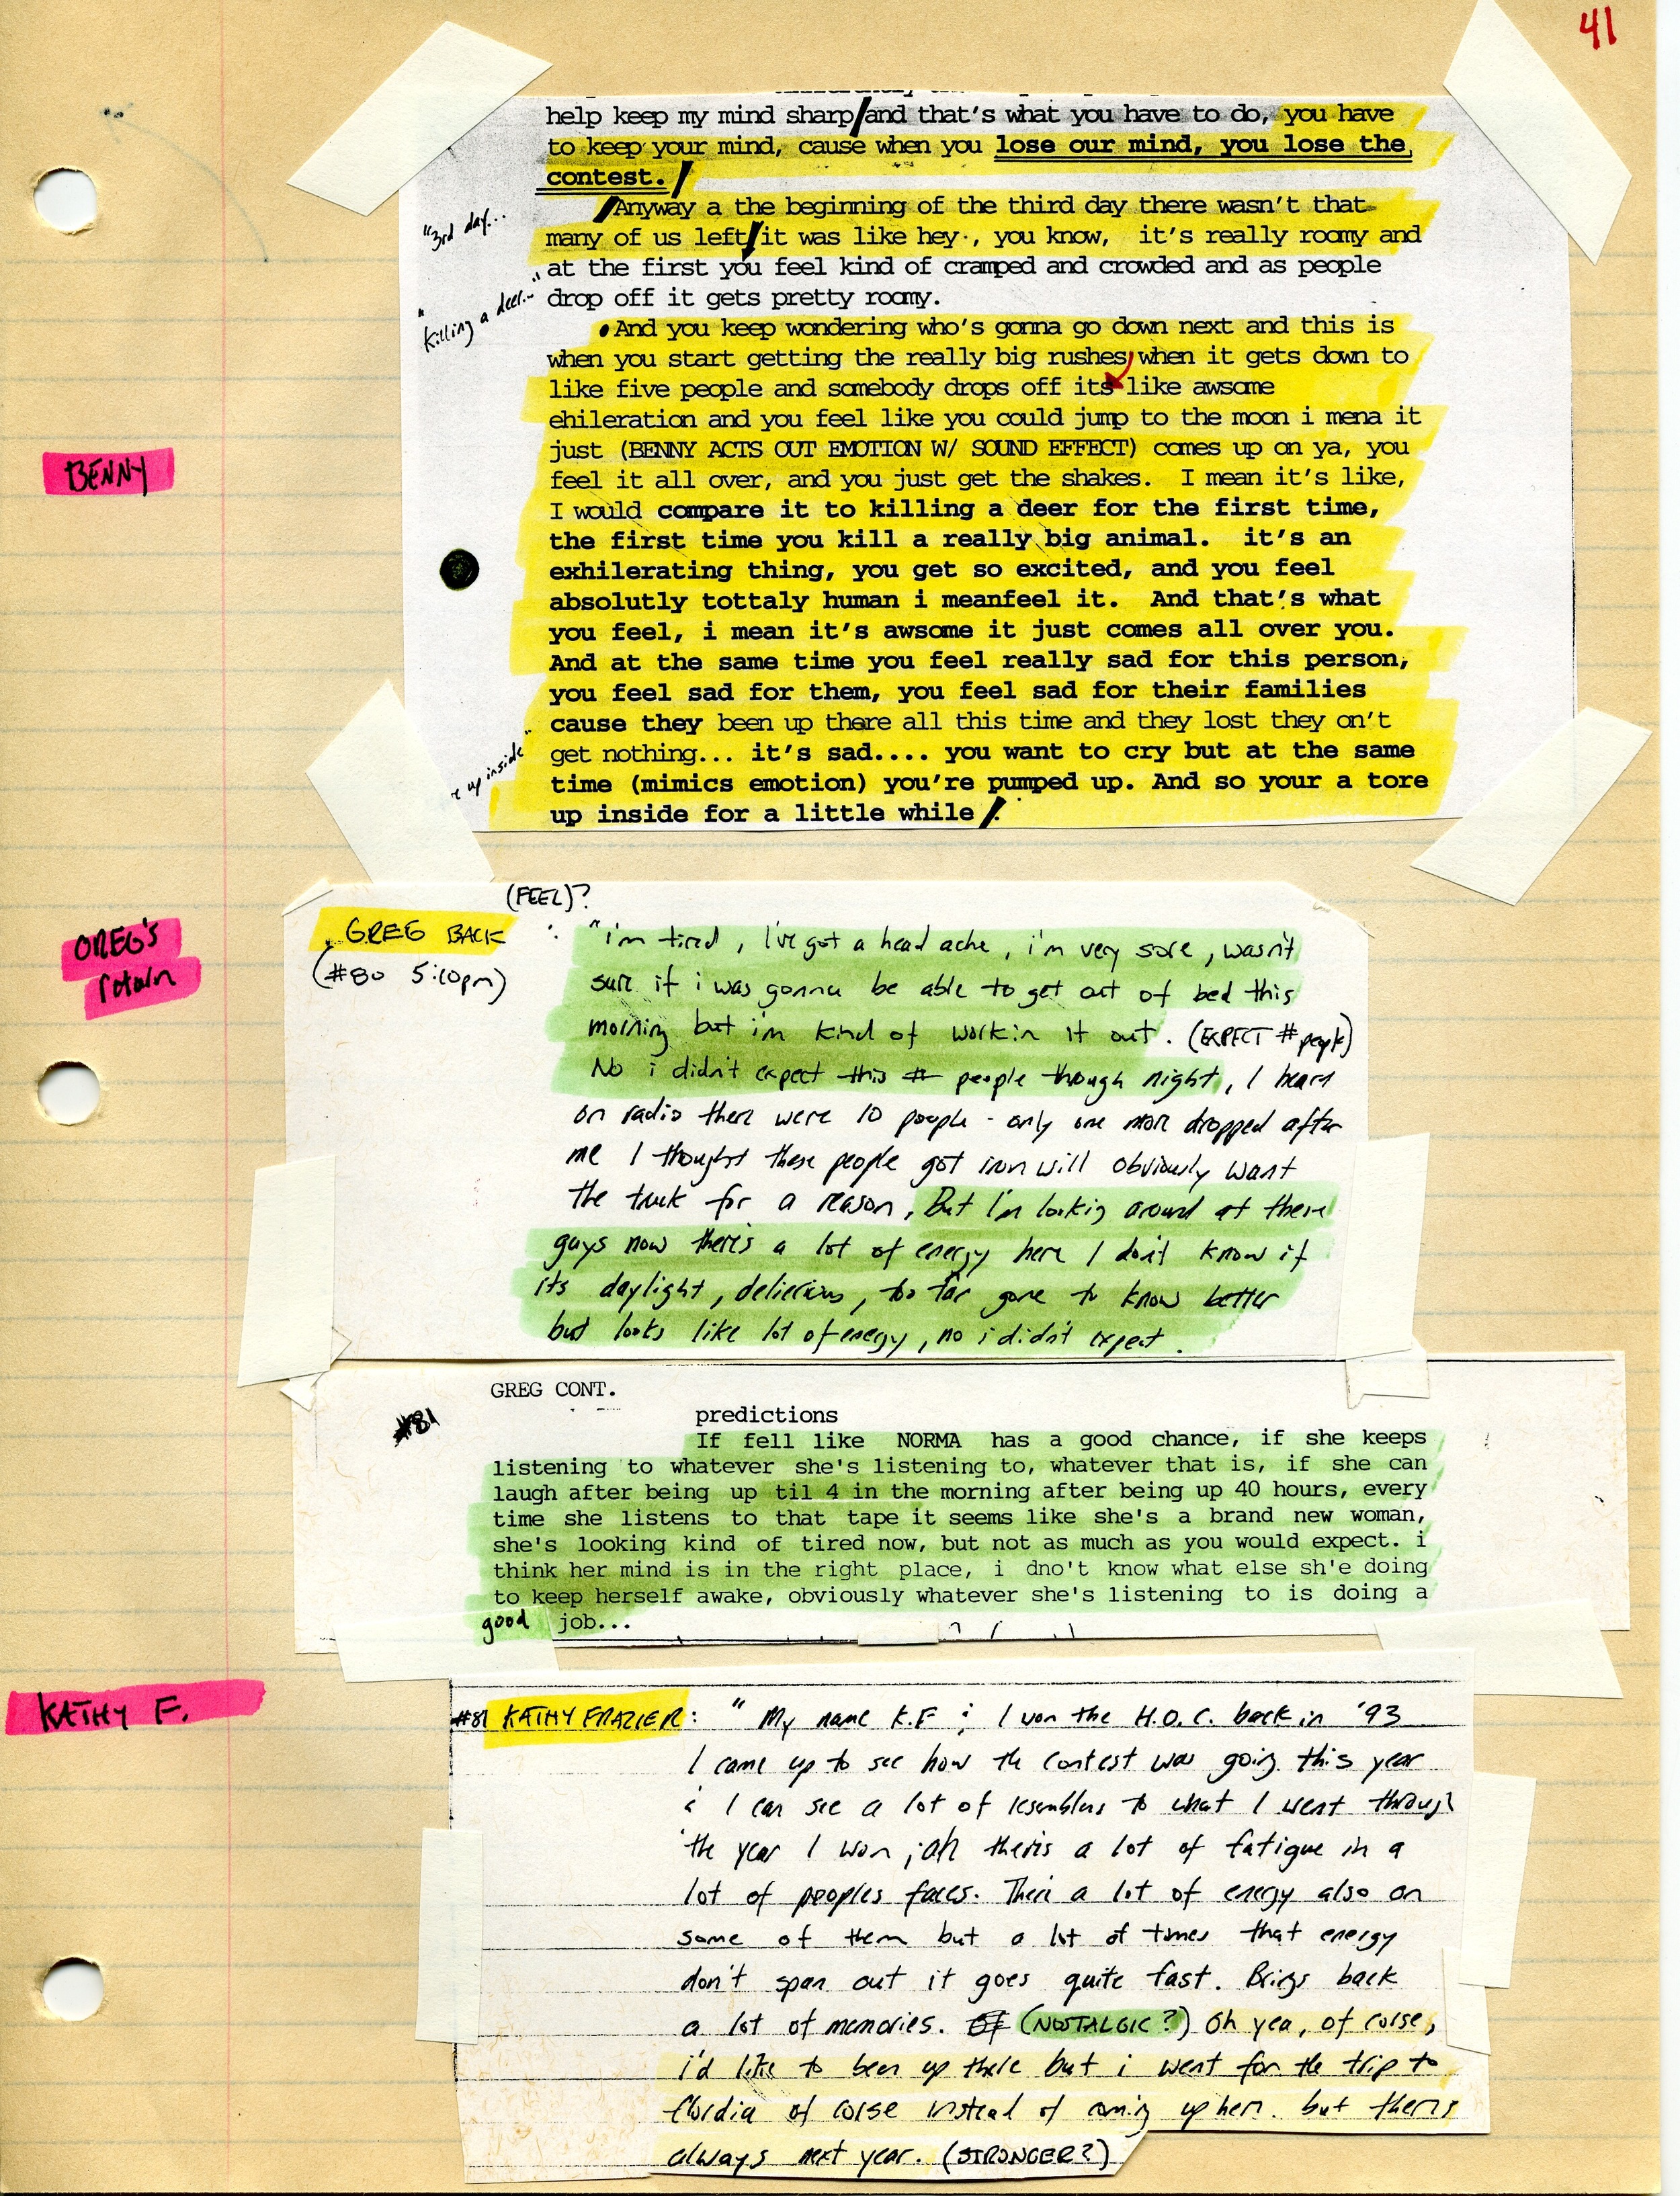 41
help keep my mind sharp/and that's what you have to do, you have
to keep your mind, cause when you lose our mind, you lose the
contest. /
/Anyway a the beginning of the third day there wasn't that
many of us left/it was like hey., you know, it's really roomy and
at the first you feel kind of cramped and crowded and as people
drop off it gets pretty roomy.
"3rd day...
"killing a deer..."
And you keep wondering who's gonna go down next and this is
when you start getting the really big rushes, when it gets down to
like five people and somebody drops off its like awsome
ehileration and you feel like you could jump to the moon i mena it
just (BENNY ACTS OUT EMOTION W/ SOUND EFFECT) comes up on ya, you
BENNY
feel it all over, and you just get the shakes. I mean it's like,
I would compare it to killing a deer for the first time,
the first time you kill a really big animal. it's an
exhilerating thing, you get so excited, and you feel
absolutly tottaly human i meanfeel it. And that's what
you feel, i mean it's awsome it just comes all over you.
And at the same time you feel really sad for this person,
you feel sad for them, you feel sad for their families
cause they been up there all this time and they lost they on't
get nothing... it's sad.... you want to cry but at the same
time (mimics emotion) you're pumped up. And so your a tore
up inside for a little while /.
up inside"
(FEEL)?
GREG BACK : "i'm tired, I've got a head ache, i'm very sore, wasn't
GREG'S
return
(#80 5:10pm)
sure if i was gonna be able to get out of bed this
morning but i'm kind of workin it out. (EXPECT # people)
No i didn't expect this # people though night, I heard
on radio there were 10 people - only one more dropped after
me I thought these people got iron will obviously want
the truck for a reason, But I'm looking around at these
guys now there's a lot of energy here I don't know if
its daylight, delierious, too far gone to know better
but looks like lot of energy, no i didn't expect.
GREG CONT.
#81
predictions
If fell like NORMA has a good chance, if she keeps
listening to whatever she's listening to, whatever that is, if she can
laugh after being up til 4 in the morning after being up 40 hours, every
time she listens to that tape it seems like she's a brand new woman,
she's looking kind of tired now, but not as much as you would expect. i
think her mind is in the right place, i dno't know what else sh'e doing
to keep herself awake, obviously whatever she's listening to is doing a
good job...
KATHY F.
#81 KATHY FRAZIER: "My name K.F & I won the H.O.C. back in '93
I came up to see how the contest was going this year
& I can see a lot of resemblens to what I went through
the year I won, ah theris a lot of fatigue in a
lot of peoples faces. There a lot of energy also on
some of them but a lot of times that energy
don't span out it goes quite fast. Brings back
a lot of memories. Of (NOSTALGIC?) Oh yea, of corse,
i'd like to been up there but i went for the trip to
flordia of corse instead of coming up here. but theris
always next year. (STRONGER?)